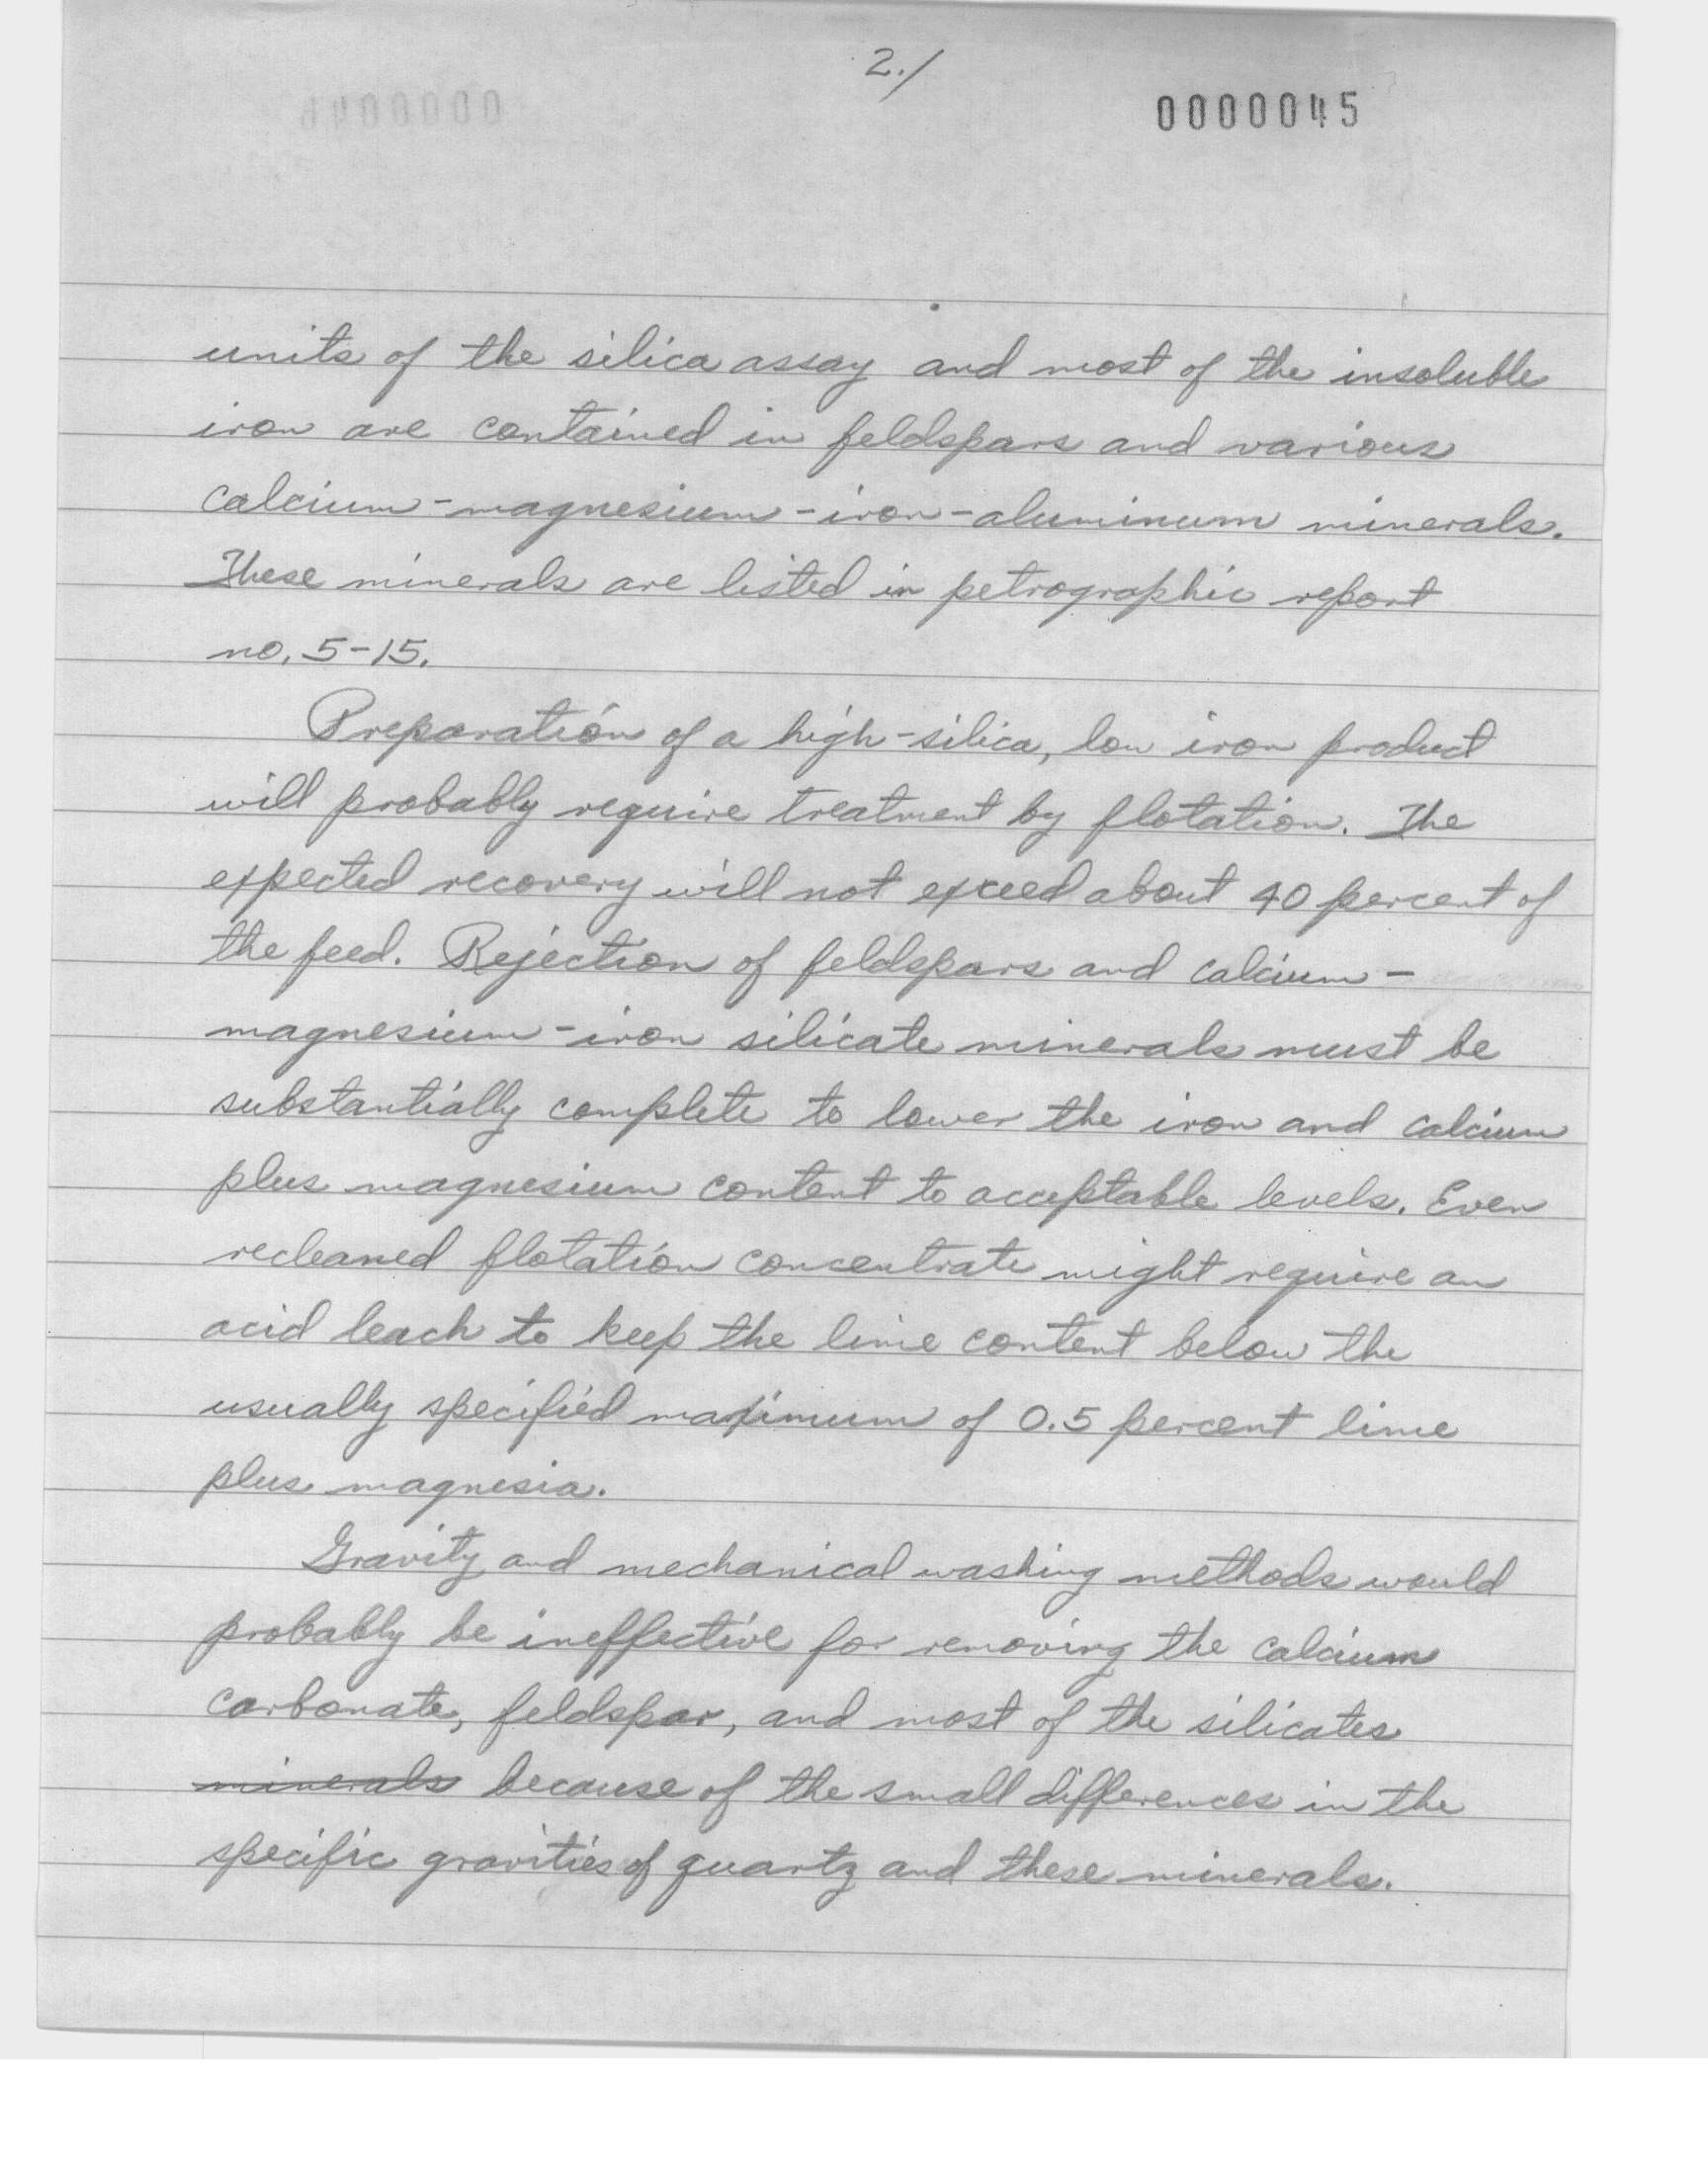 2./
0000045
units of the silica assay and most of the insoluble
iron are contained in feldspars and various
calcium-magnesium-iron-aluminum minerals.
These minerals are listed in petrographic report
no. 5-15.
Preparation of a high-silica, low iron product
will probably require treatment by flotation. The
expected recovery will not exceed about 40 percent of
the feed. Rejection of feldspars and calcium-
magnesium-iron silicate minerals must be
substantially complete to lower the iron and calcium
plus magnesium content to acceptable levels. Even
recleaned flotation concentrate might require an
acid leach to keep the lime content below the
usually specified maximum of 0.5 percent lime
plus magnesia.
Gravity and mechanical washing methods would
probably be ineffective for removing the calcium
carbonate, feldspar, and most of the silicates
minerals because of the small differences in the
specific gravities of quartz and these minerals.